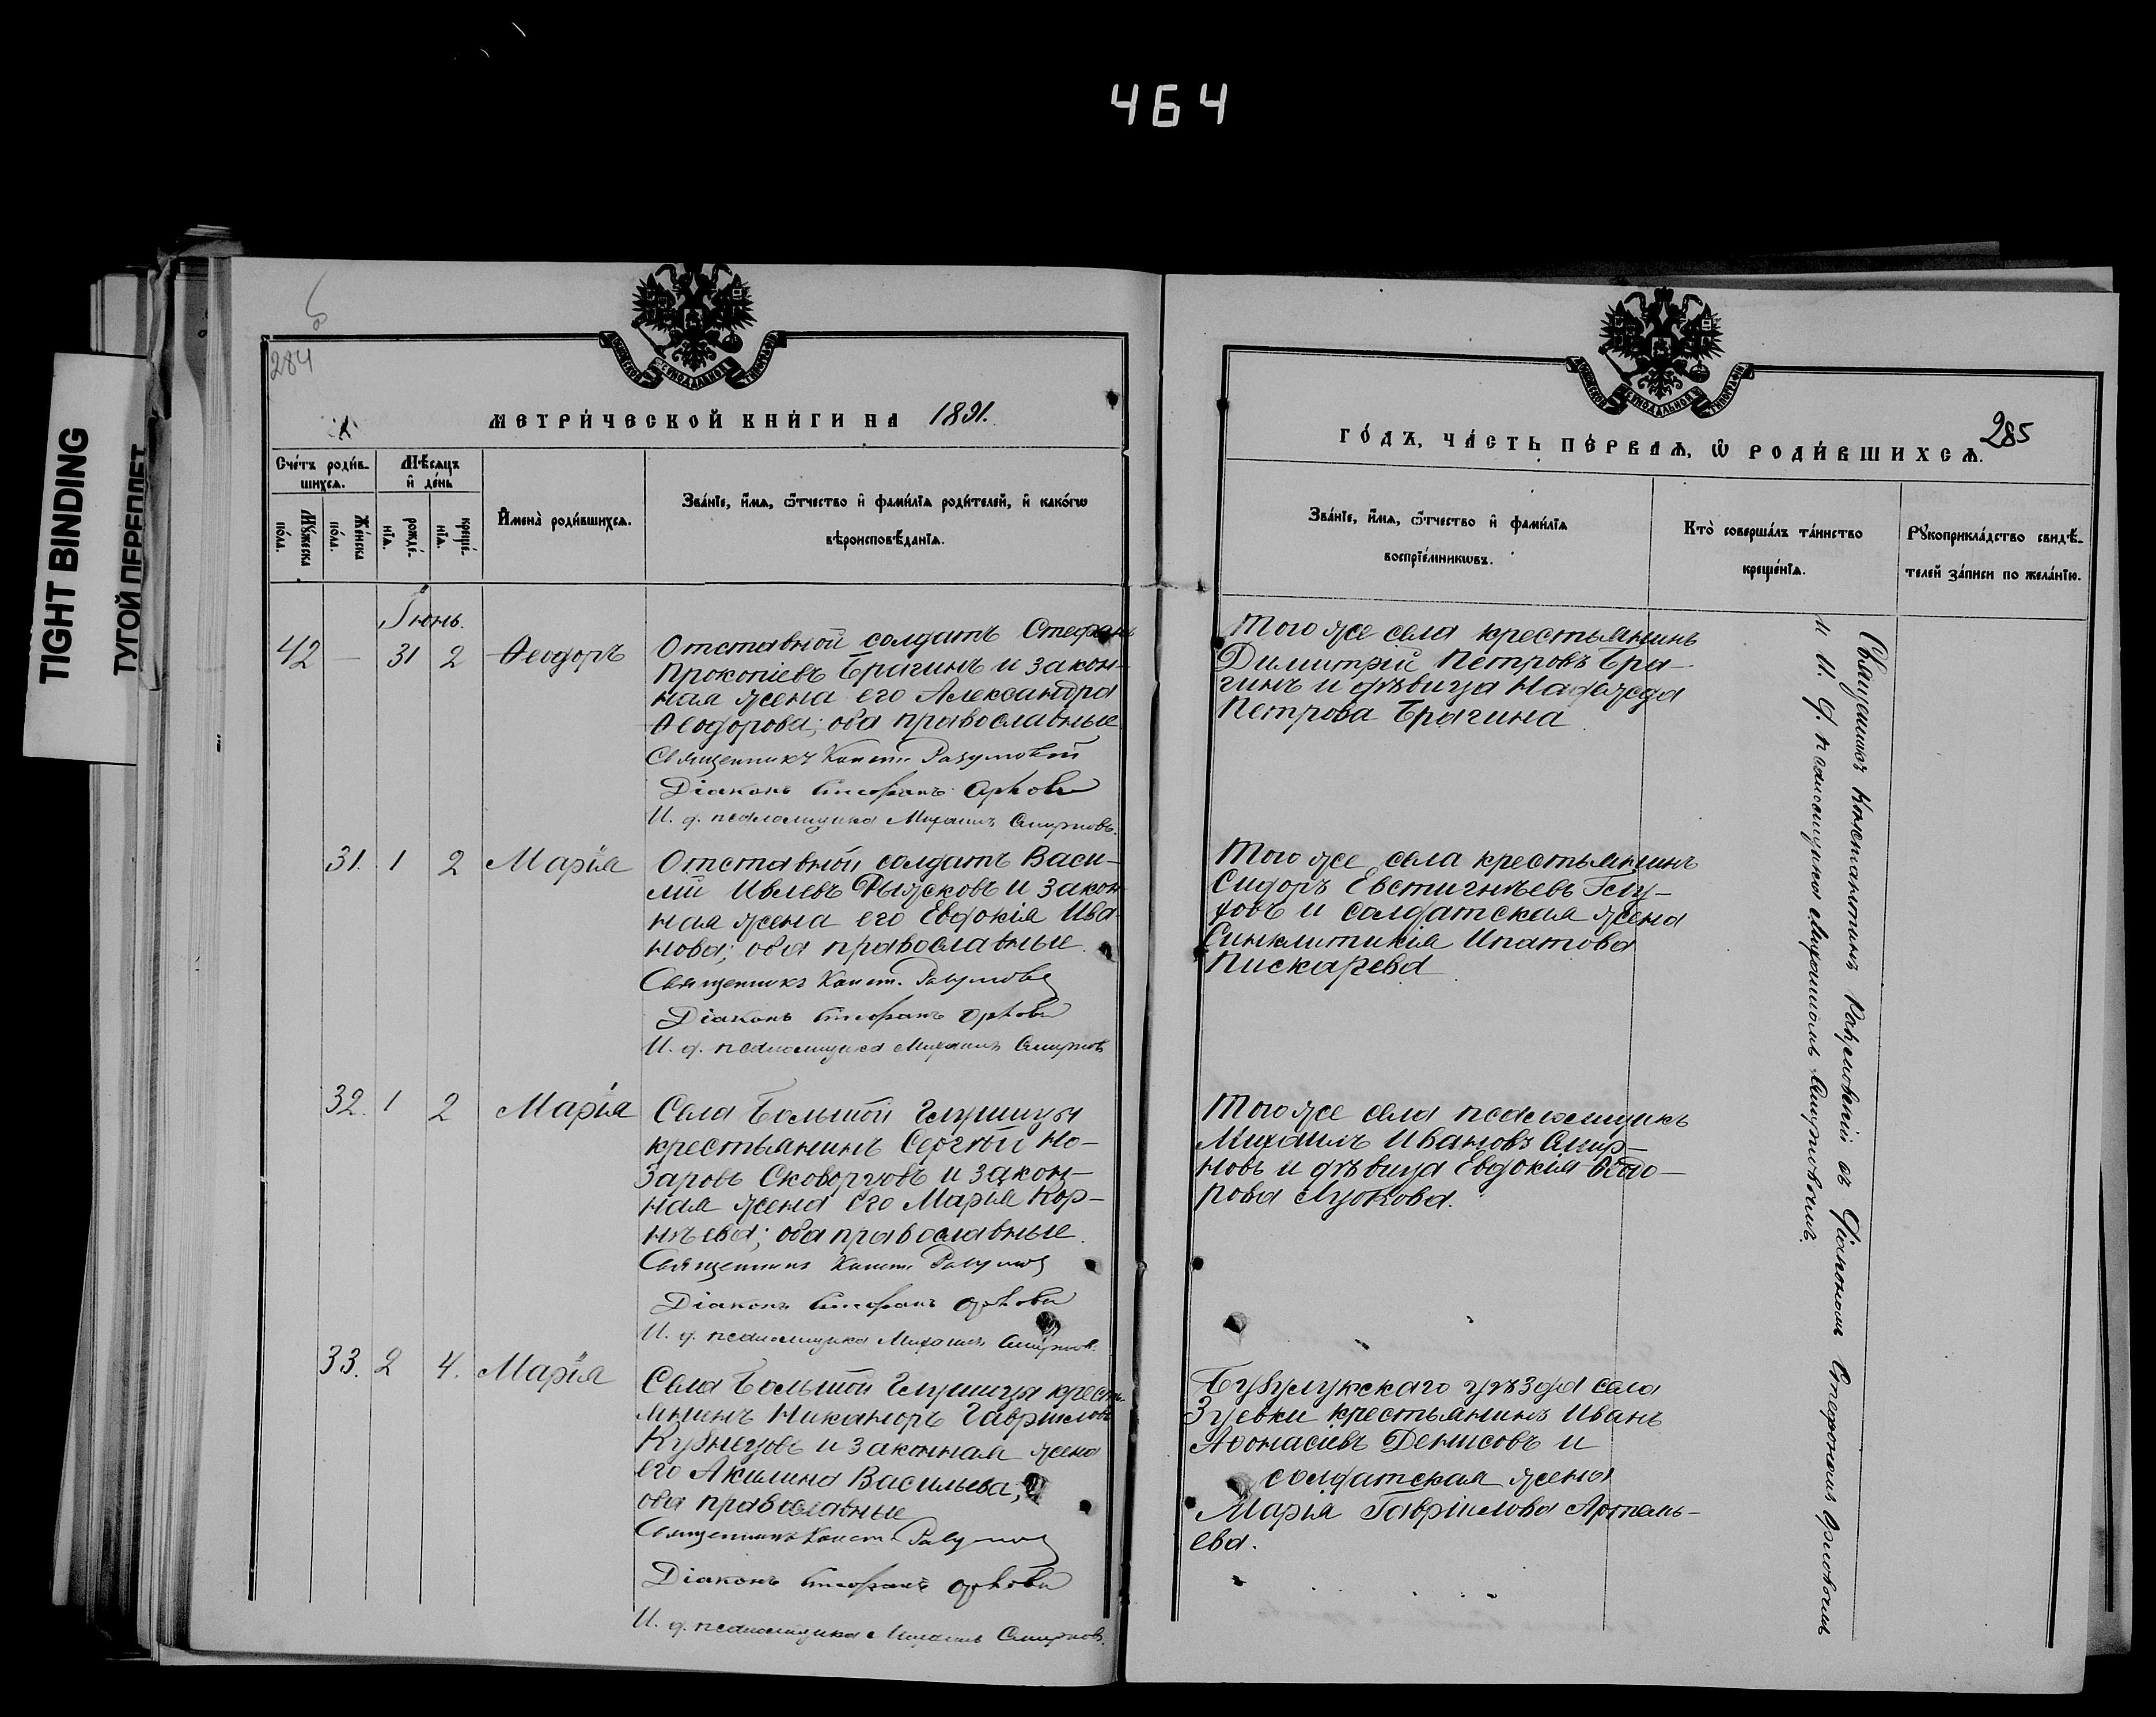 464
TIGHT BINDING
ТУГОЙ ПЕРЕПЛЕТ
284
МЕТРИЧЕСКОЙ КНИГИ НА 1891.
Счетъ родив-
шихся.
Мѣсяцъ
и день
Мужеска
пола.
Женска
пола.
рожде-
нія.
креще-
нія.
Имена родившихся.
Званіе, имя, отчество и фамилія родителей, и какого
вѣроисповѣданія.
Іюнь.
42 — 31 2 Ѳеодоръ
Отставной солдатъ Стефанъ
Прокопіевъ Брагинъ и закон-
ная жена его Александра
Ѳеодорова; оба православные
Священникъ Конст. Разумовскій
Діаконъ Стефанъ Орловъ
И. д. псаломщика Михаилъ Смирновъ.
31. 1 2 Марія
Отставной солдатъ Васи-
лій Ивлевъ Рыжковъ и закон
ная жена его Евдокія Ива
нова; оба православные
Священникъ Конст. Разумов
Діаконъ Стефанъ Орловъ
И. д. псаломщика Михаилъ Смирновъ
32. 1 2 Марія
Села Большой Глушицы
крестьянинъ Сергѣй На-
заровъ и закон-
ная жена его Марія Кор-
нѣева; оба православные
Священникъ Конст. Разумов
Діаконъ Стефанъ Орловъ
И. д. псаломщика Михаилъ Смирнов.
33. 2 4. Марія
Села Большой Глушицы кресть
янинъ Никаноръ Гавріиловъ
Кузнецовъ и законная жена
его Акилина Васильева;
оба православные
Священникъ Конст. Разумов
Діаконъ Стефанъ Орловъ
И. д. псаломщика Михаилъ Смирновъ.
285
ГОДЪ, ЧАСТЬ ПЕРВАЯ, Ѡ РОДИВШИХСЯ.
Званіе, имя, отчество и фамилія
воспріемниковъ.
Кто совершалъ таинство
крещенія.
Рукоприкладство свидѣ-
телей записи по желанію.
Того же села крестьянинъ
Димитрій Петровъ Бра-
гинъ и дѣвица Надежда
Петрова Брагина
Того же села крестьянинъ
Сидоръ Евстигнѣевъ Глу-
ховъ и солдатская жена
Синклитикія Ипатова
Пискарева
Того же села псаломщикъ
Михаилъ Ивановъ Смир-
новъ и дѣвица Евдокія Ѳедо-
рова
Бузулукскаго уѣзда села
Зуевки крестьянинъ Иванъ
Аѳонасіевъ Денисовъ и
солдатская жена
Марія Гавріилова Артемь-
ева.
Священникъ Константинъ Разумовскій съ діакономъ Стефаномъ Орловымъ
и И. д. псаломщика Михаиломъ Смирновымъ.